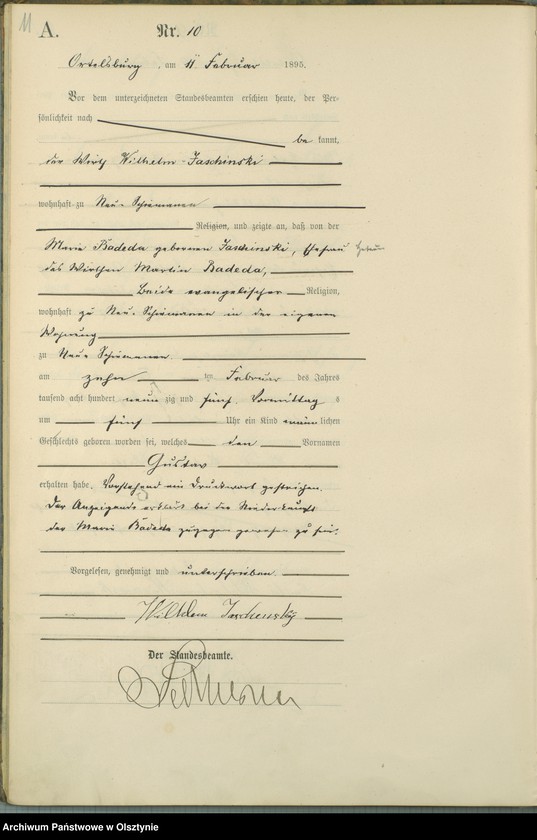 11
A. Nr. 10
Ortelsburg, am 11 Februar 1895.
Vor dem unterzeichneten Standesbeamten erschien heute, der Per-
sönlichkeit nach
be kannt,
der Wirth Wilhelm Jaschinski
wohnhaft zu Neu-Schiemanen
Religion, und zeigte an, daß von der
Marie Badeda geborenen Jaschinski, Ehefrau
des Wirthen Martin Badeda,
Beide evangelischer Religion,
wohnhaft zu Neu-Schiemanen in der eigenen
Wohnung
zu Neu-Schiemanen.
am zehn ten Februar des Jahres
tausend acht hundert neun zig und fünf, Vormittag s
um fünf Uhr ein Kind männ lichen
Geschlechts geboren worden sei, welches den Vornamen
Gustav
erhalten habe. Vorstehend ein Druckwort gestrichen.
Der Anzeigende erklärt bei der Niederkunft
der Marie Badeda zugegen gewesen zu sein.
Vorgelesen, genehmigt und unterschrieben.
Wilhelm Jaschensky
Der Standesbeamte.
Archiwum Państwowe w Olsztynie